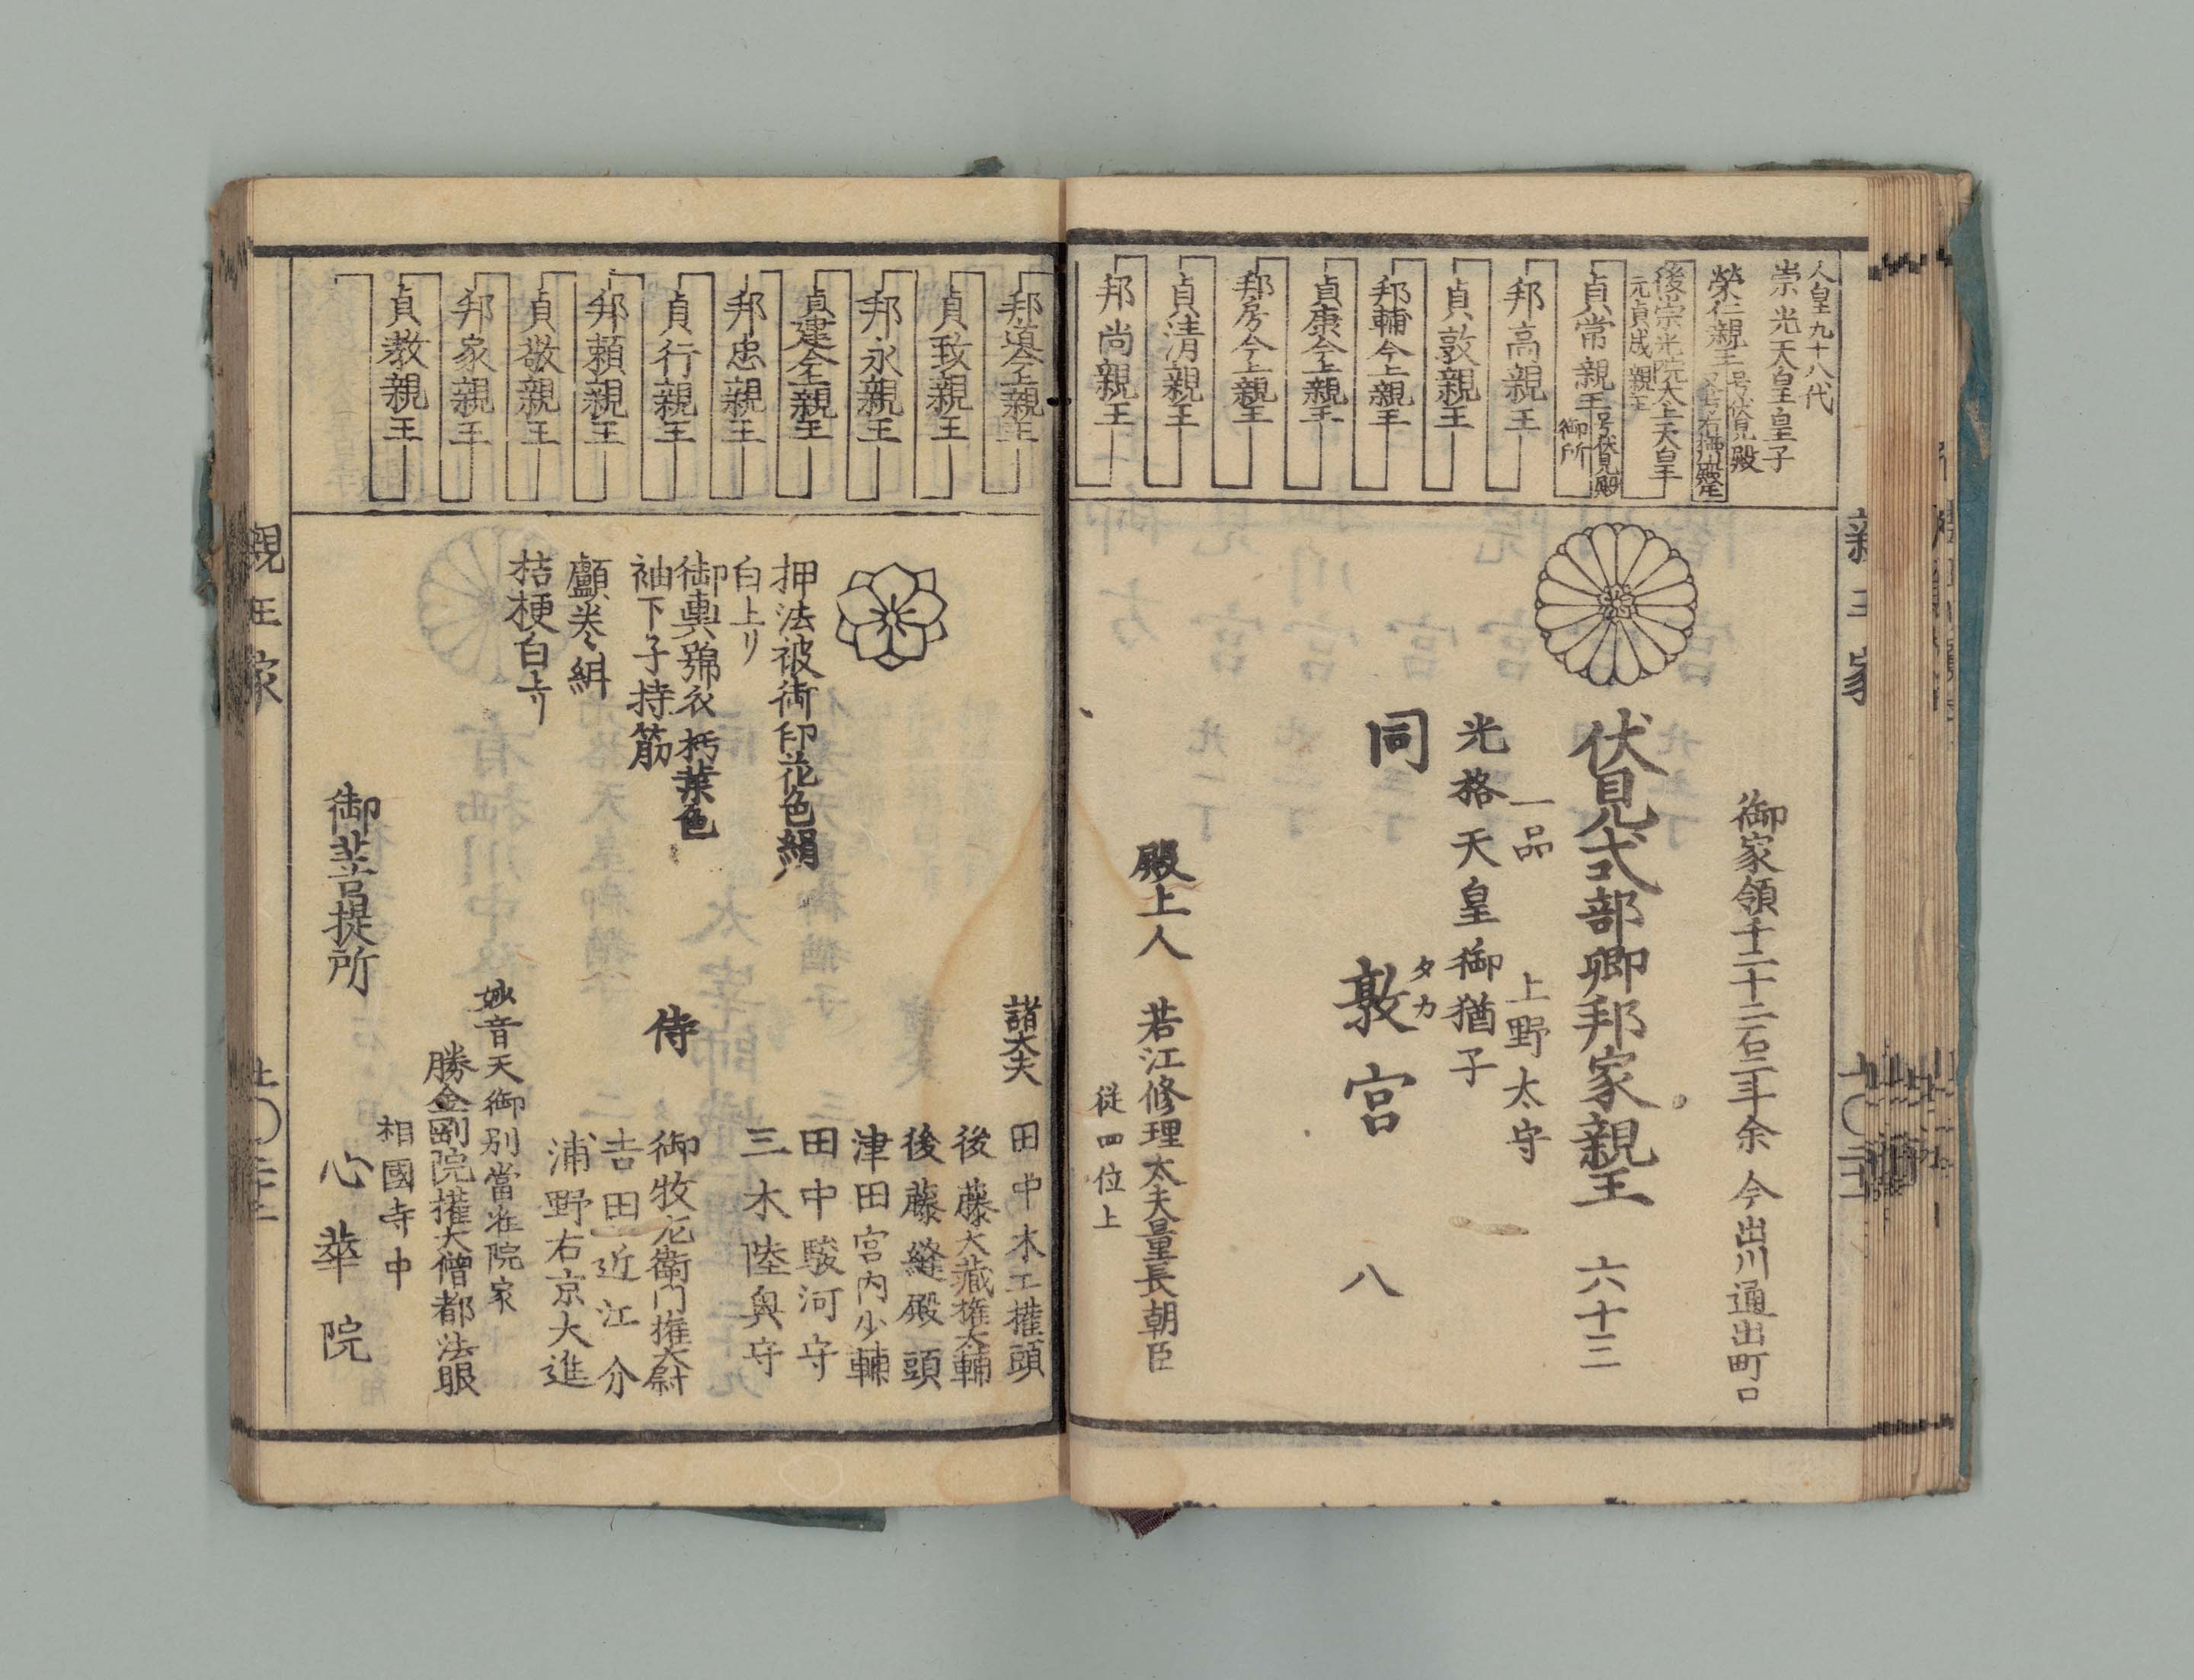 人皇九十八代
崇光天皇皇子
榮仁親王
号伏見殿
後崇光院太上天皇
元貞成親王
貞常親王
号伏見殿
御所
邦高親王
貞敦親王
邦輔今上親王
貞康今上親王
邦房今上親王
貞清親王
邦尚親王
御家領千二十二石二斗余 今出川通出町口
伏見式部卿邦家親王 六十三
一品 上野太守
光格天皇御猶子
同 敦宮 八
タカ
殿上人 若江修理太夫量長朝臣
従四位上
親王家
邦道今上親王
貞致親王
邦永親王
貞建今上親王
邦忠親王
貞行親王
邦頼親王
貞敬親王
邦家親王
貞教親王
押法被御印花色絹
白上リ
御輿舁衣朽葉色
袖下子持筋
桔梗白上リ
諸大夫 田中木工權頭
後藤大藏權太輔
後藤縫殿頭
津田宮内少輔
田中駿河守
三木陸奥守
侍 御牧左衛門權大尉
吉田近江介
浦野右京大進
妙音天御別當 院家
勝金剛院權大僧都法眼
御菩提所 相國寺中
心華院
親王家